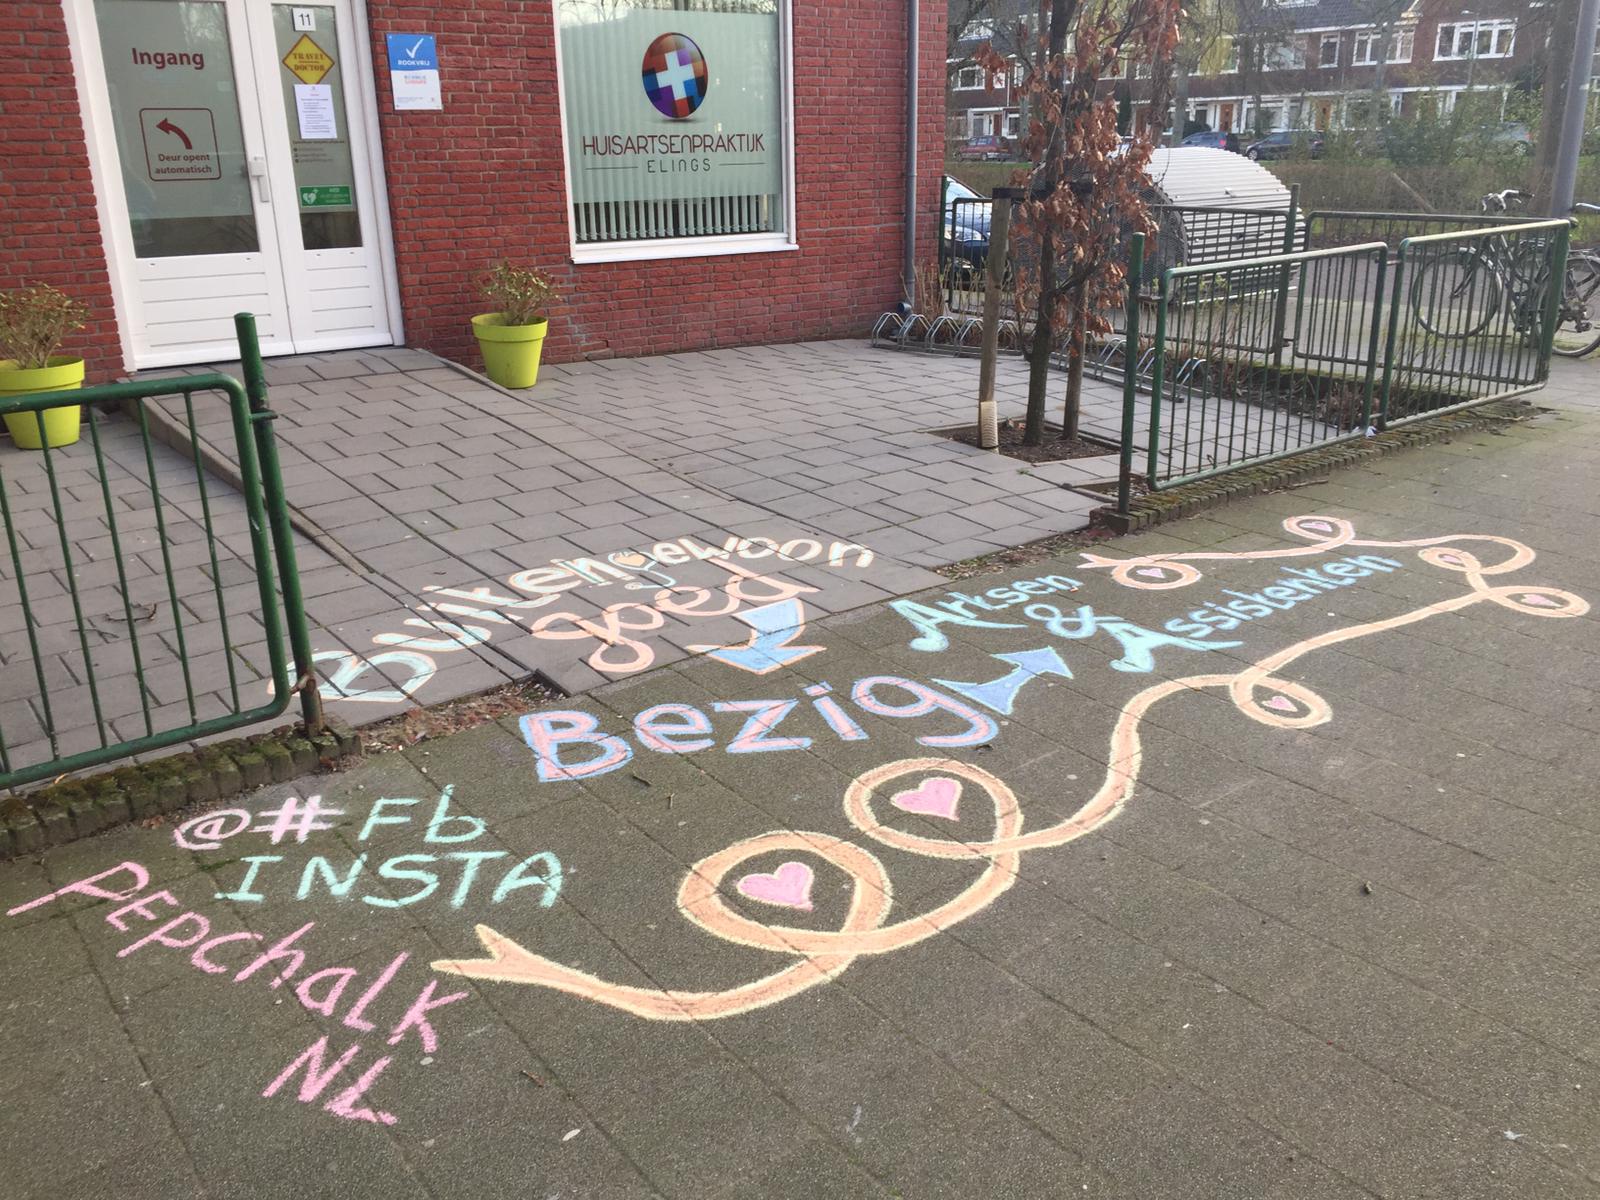 Ingang
Deur opent
automatisch
11
TRAVEL
DOCTOR
AED
ROOKVRIJ
HUISARTSENPRAKTIJK
ELINGS
Buitengewoon
goed
Bezig
Artsen
&
Assistenten
@#Fb
INSTA
PEPchalk
NL